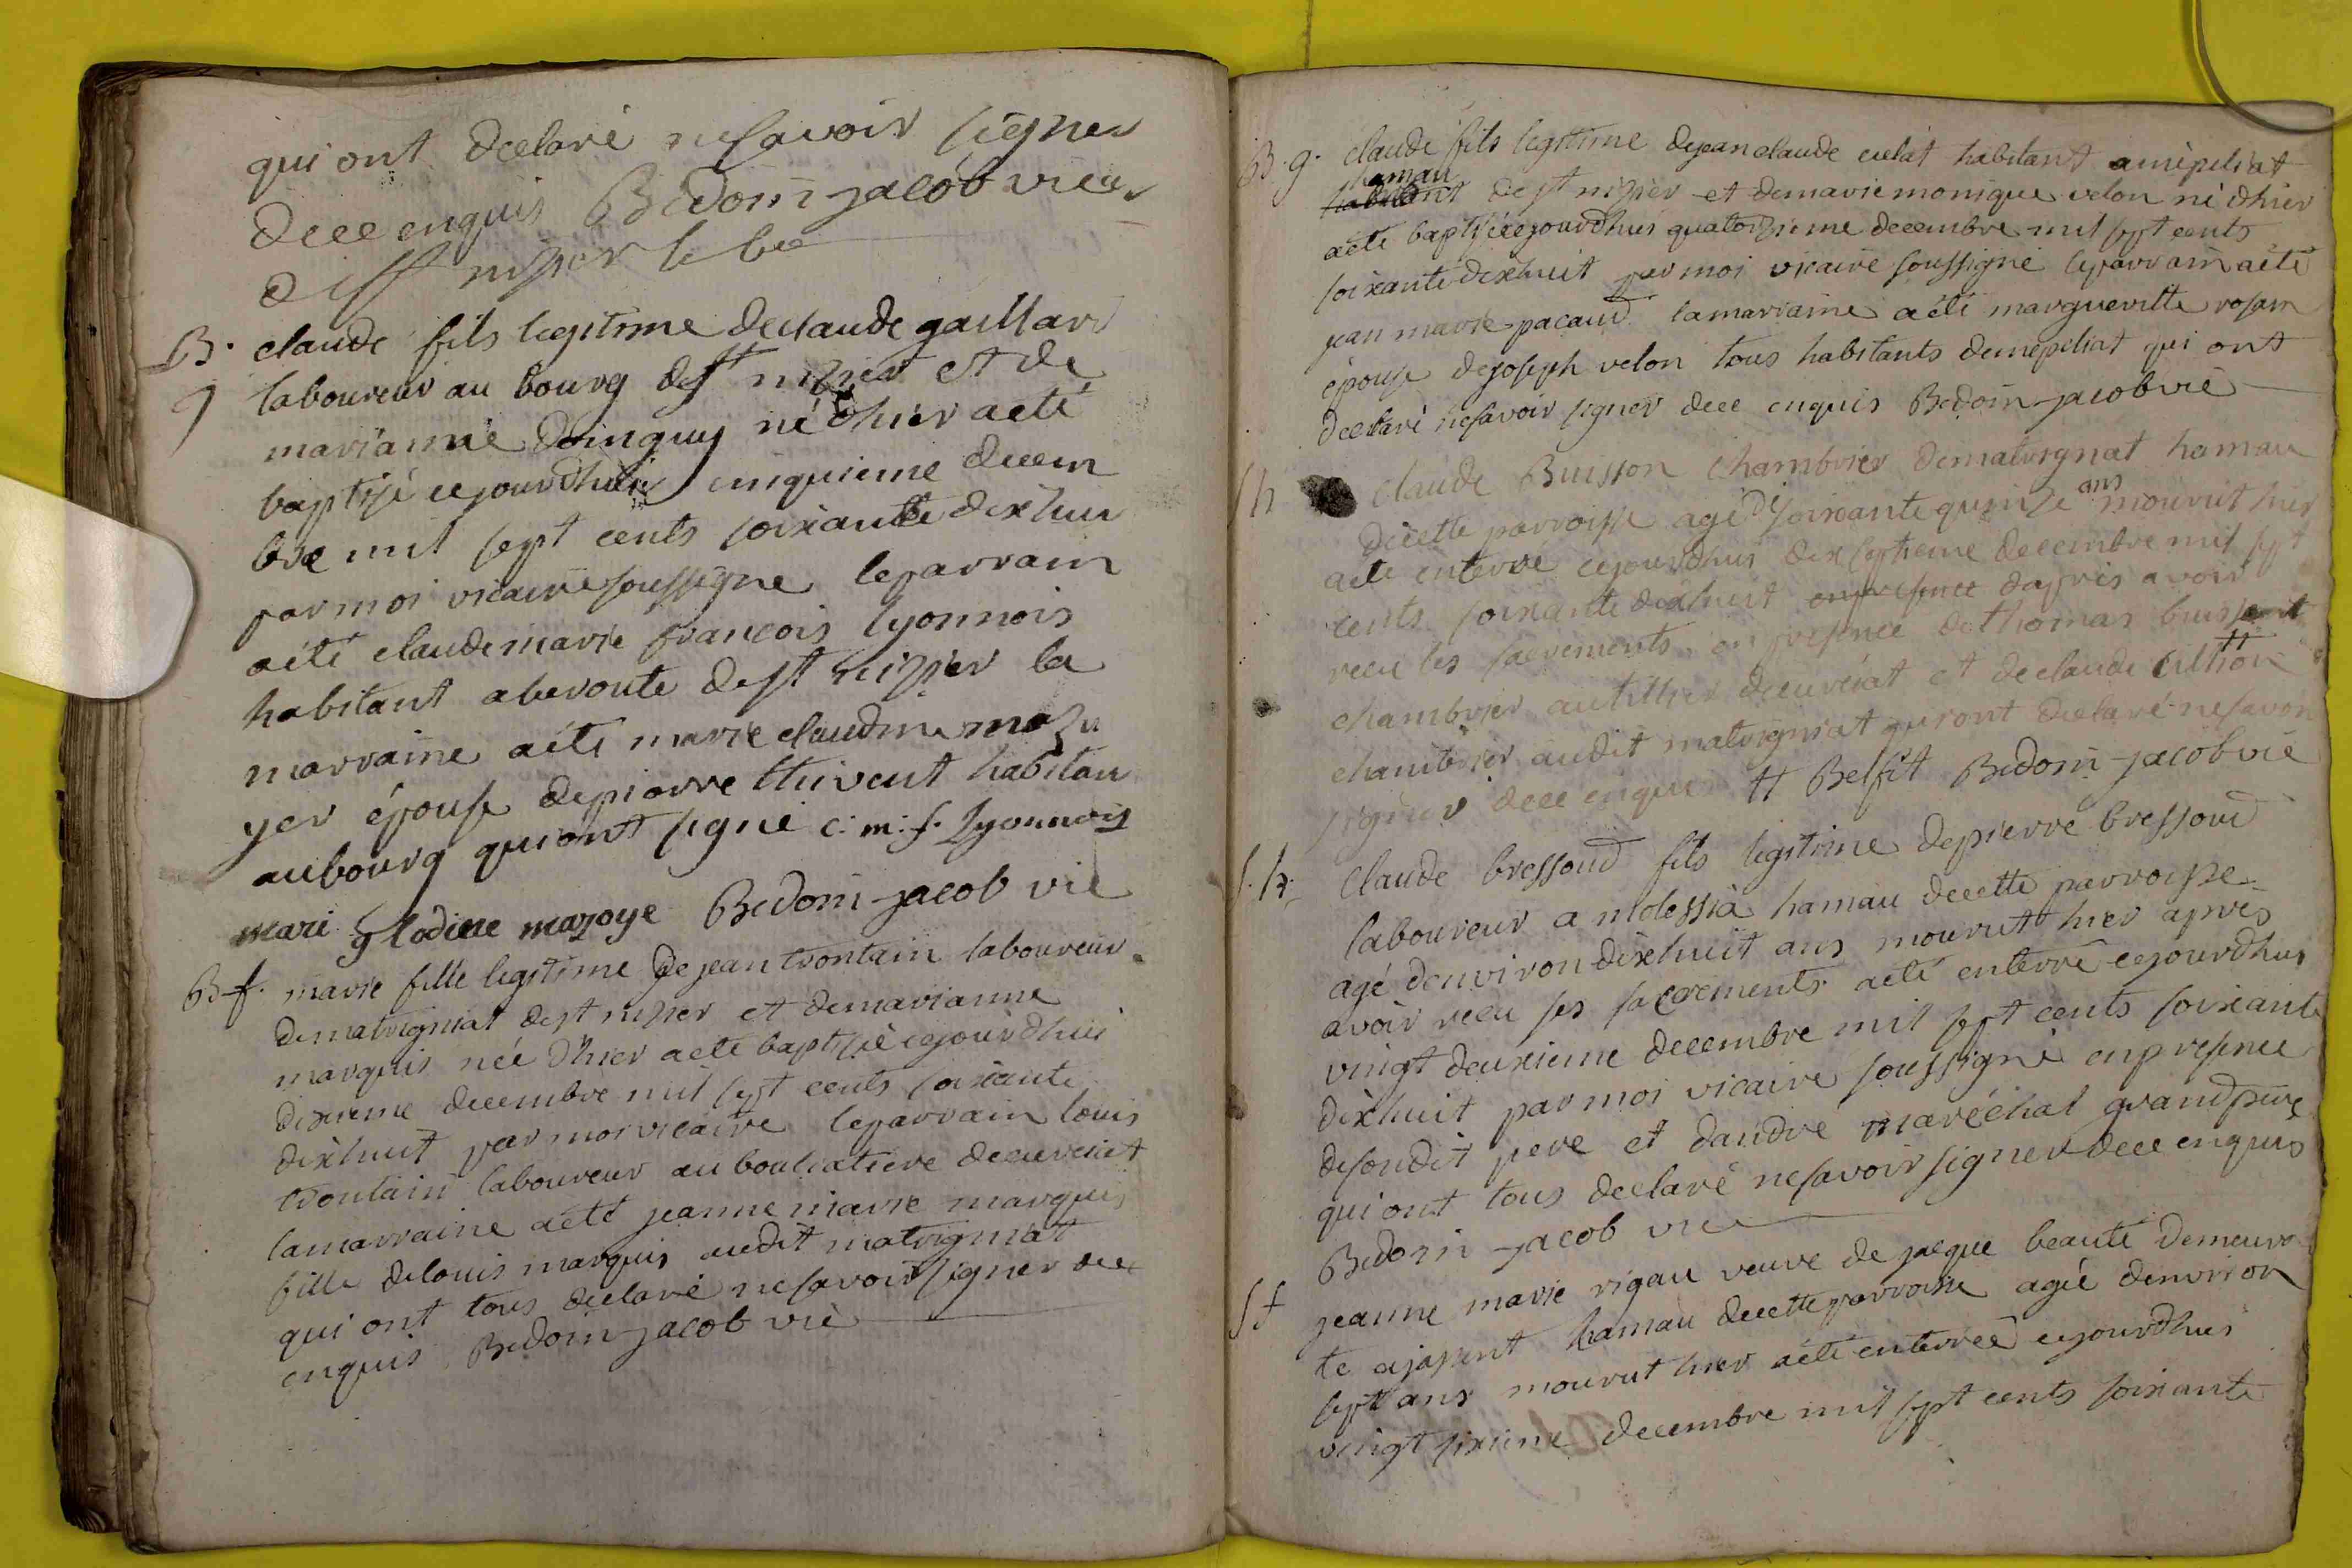 qui ont declaré nesavoir signer
dece enquis Bedoin-jacob vicr
d st nizier le b
B. claude fils legitime declaude gaillard
g laboureur au bourg dest nizier et de
marianne doinguy né dhier aeté
baptisé cejourdhui cinquieme decem
bre mil sept cents soixante dixhuit
par moi vicaire soussigne leparrain
aété claudemarie francois lyonnois
habitant aberoute dest nizier la
marraine aété marie claudine mazo
yer épouse depierre thivent habitan
aubourg quiont signé c. m. f. Lyonnois
mari glodine mazoye Bedoin-jacob vie
B f. marie fille legitime de jean trontain laboureur
dematrigniat dest nizier et demarianne
marquis née dhier aeté baptisé cejourdhui
dixieme decembre mil sept cents soixante
dixhuit par moi vicaire leparrain louis
trontain laboureur au boulatiere decureciat
lamarraine aété jeanne marie marquis
fille delouis marquis audit matrigniat
qui ont tous declaré nesavoir signer dece
enquis Bedoin-jacob vie
B. g. claude fils legitime dejeanclaude culat habitant amépiliat
hamau
habitant de st nizier et demarie monique velon né dhier
aété baptisé cejourdhui quatorzieme decembre mil sept cents
soixante dixhuit par moi vicaire soussigné leparrain aété
jean marie pacaud lamarraine aété margueritte rosain
épouse dejoseph velon tous habitants demépeliat qui ont
declaré nesavoir signer dece enquis Bedoin-jacob vie
S h claude Buisson chambrier dematrignat hamau
decette parroisse agé de soixante quinze ans mourut hier
aeté enterré cejourdhui dix septieme decembre mil sept
cents soixante dixhuit enpresence daprés avoir
recu les sacrements en presence de thomas buisson
chambrier autillier decureciat et declaude tt
chambrier audit matrigniat qui ont declaré nesavoir
signer dece enquis tt Belfit Bedoin-jacob vie
S. h. Claude bressoud fils legitime depierre bressoud
laboureur a molessia hamau decette parroisse
agé denviron dixhuit ans mourut hier aprés
avoir recu ses sacrements aeté enterré cejourdhui
vingt deuxieme decembre mil sept cents soixante
dixhuit par moi vicaire soussigné enpresence
desondit pere et dandré maréchal grandpere
qui ont tous declaré nesavoir signer dece enquis
Bedoin-jacob vie
S f jeanne marie rigau veuve de jacque beauté demeura
te ajapent hamau decette parroisse agée denviron
sept ans mourut hier aété enterrée cejourdhui
vingt sixieme decembre mil sept cents soixante